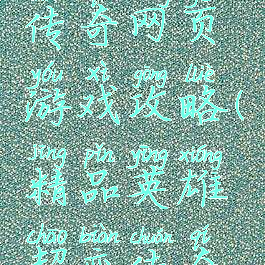 传奇网页
yóu xì gōng lüè
游戏攻略(
jīng pǐn yīng xióng
精品英雄
chāo biàn chuán qí
超变传奇